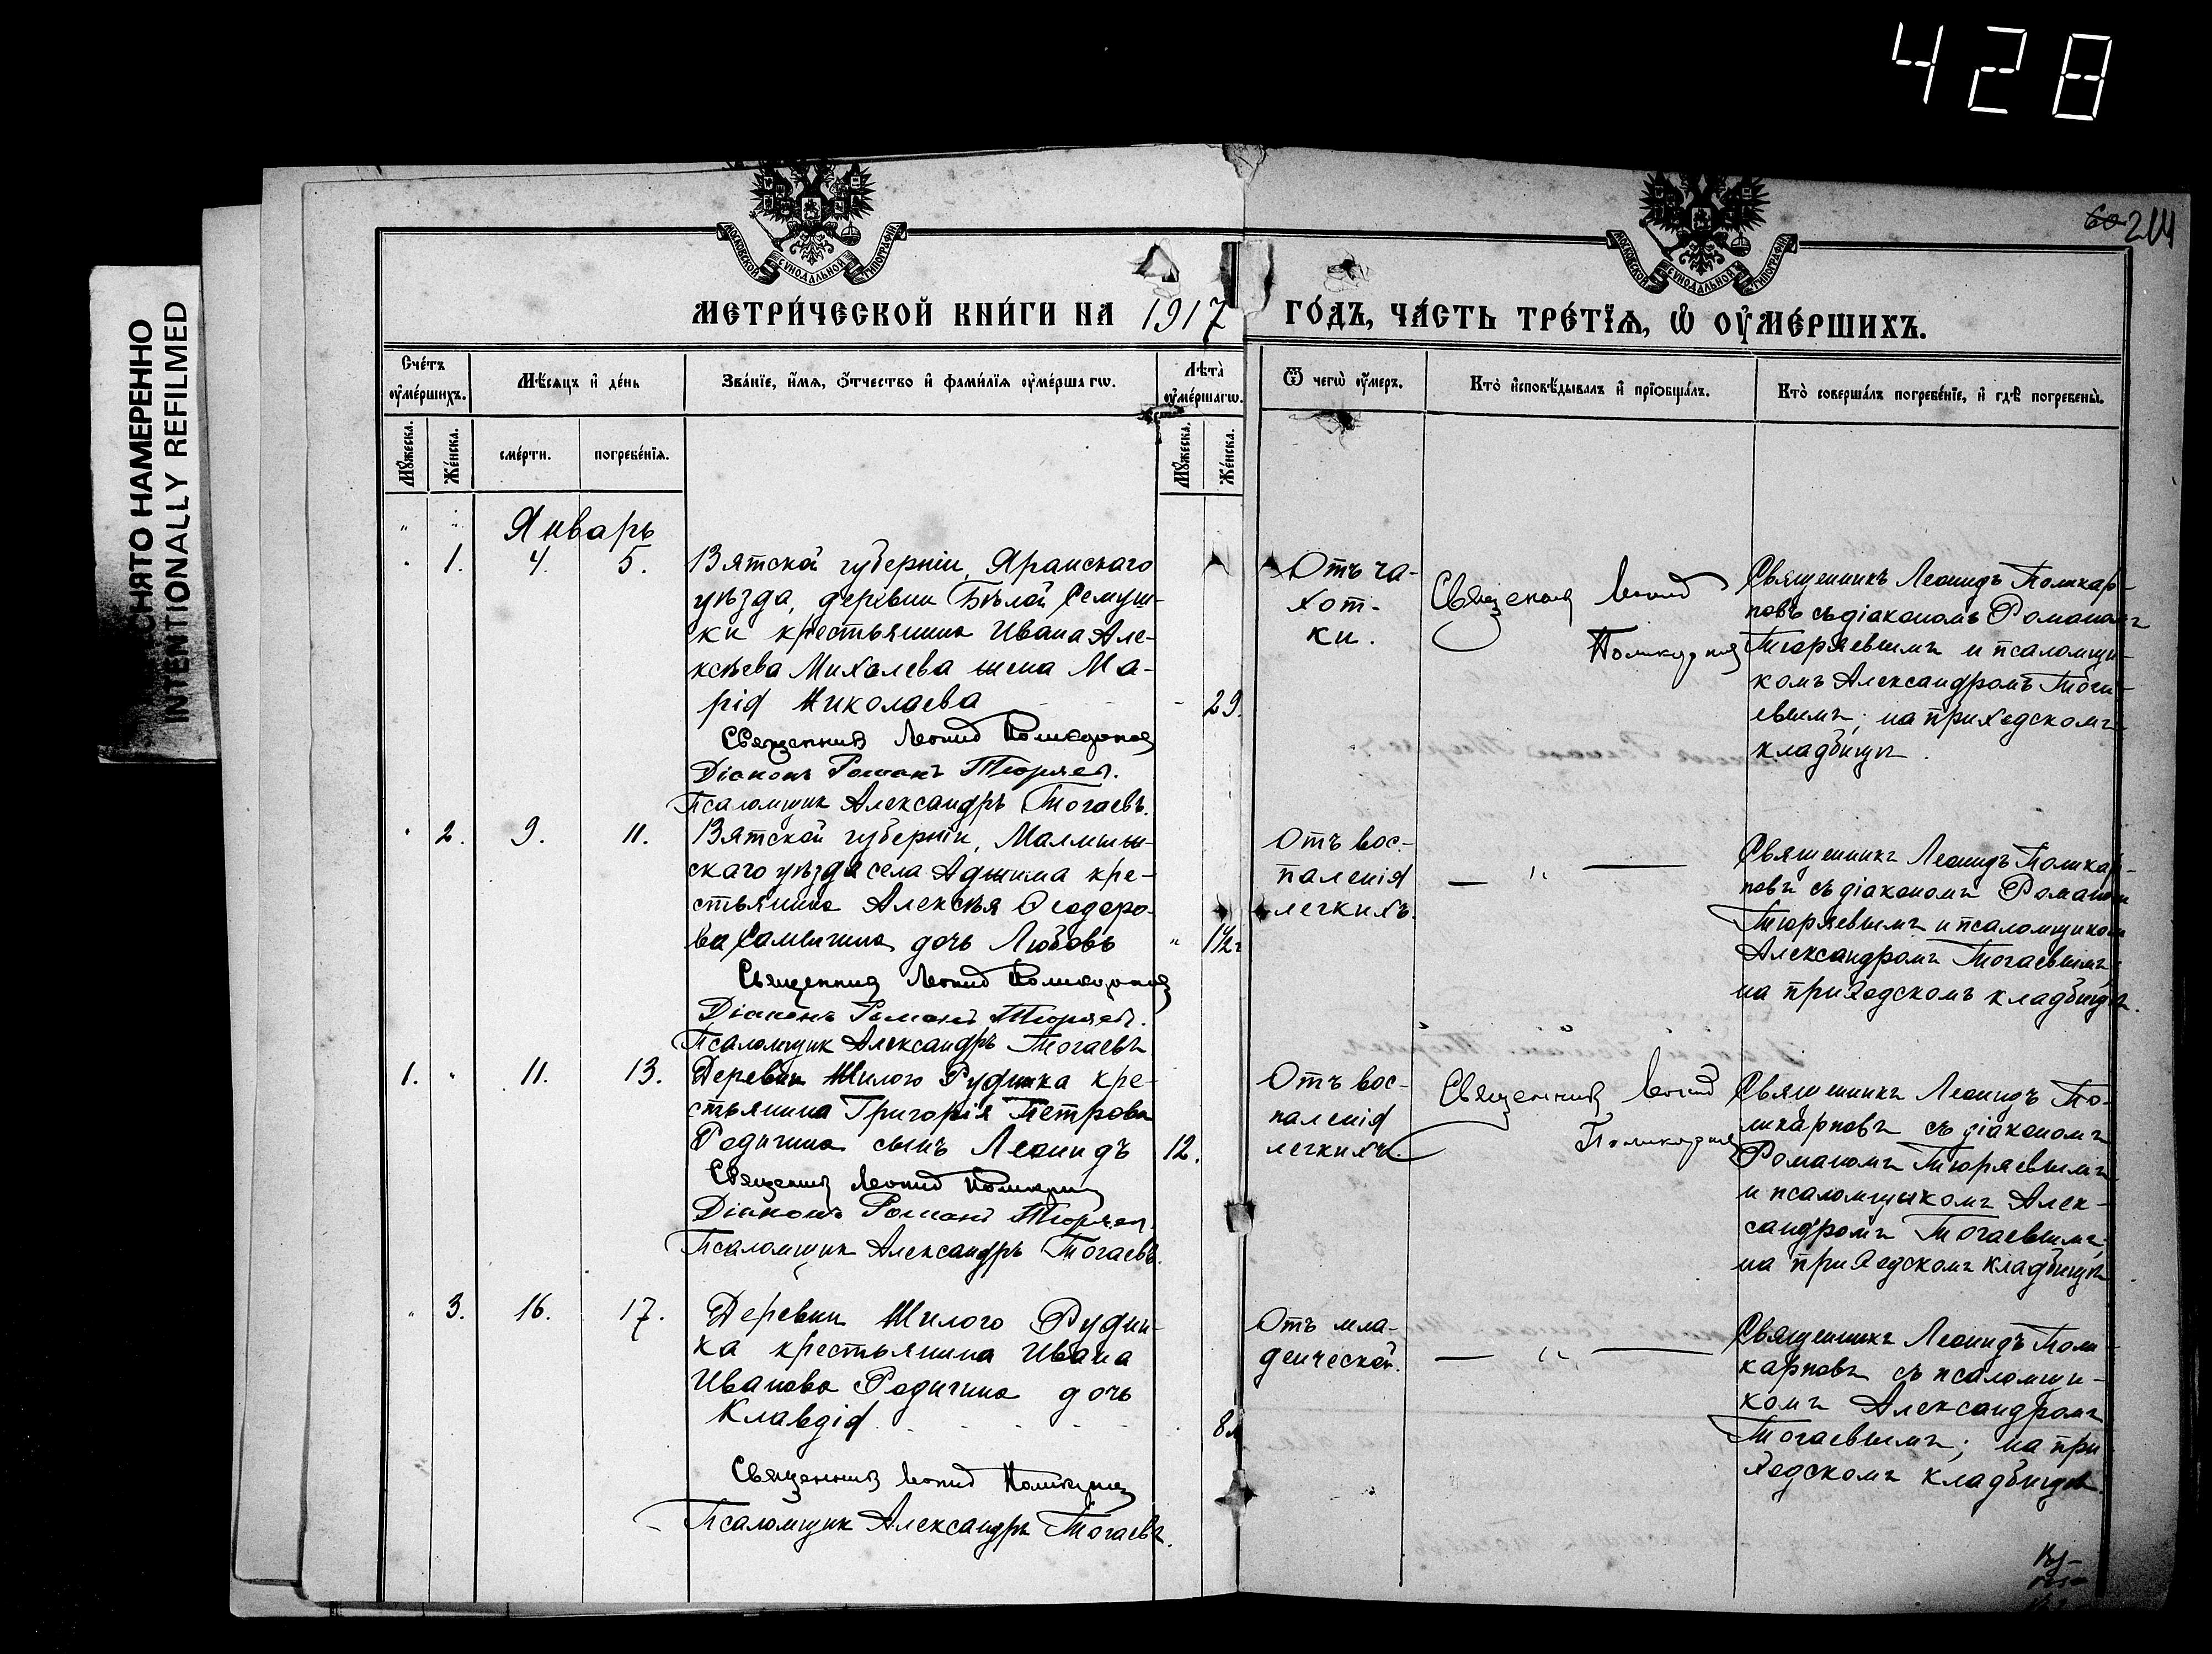 428
СНЯТО НАМЕРЕННО
INTENTIONALLY REFILMED
60 214
МОСКОВСКОЙ СѴНОДАЛЬНОЙ ТИПОГРАФІИ
МОСКОВСКОЙ СѴНОДАЛЬНОЙ ТИПОГРАФІИ
МЕТРИ́ЧЕСКОЙ КНИ́ГИ НА 1917 ГО́ДЪ, ЧА́СТЬ ТРЕ́ТЇѦ, Ѡ҆ ОУ҆МЕ́РШИХЪ.
Сче́тъ оу҆ме́ршихъ.
Мѣ́сѧцъ и҆ де́нь
Зва́нїе, и҆́мѧ, ѻ҆́тчество и҆ фами́лїѧ оу҆ме́ршагѡ.
Лѣта̀ оу҆ме́ршагѡ.
Ѿ чегѡ̀ оу҆́меръ.
Кто̀ и҆сповѣ́дывалъ и҆ прїѻбща́лъ.
Кто̀ соверша́лъ погребе́нїе, и҆ гдѣ̀ погребены̀.
Мꙋ́жеска.
Же́нска.
сме́рти.
погребе́нїѧ.
Мꙋ́жеска.
Же́нска.
Январь
1. 4. 5.
Вятской губерніи, Яранскаго
уѣзда, деревни Бѣлой Семуш-
ки крестьянина Ивана Але-
ксѣева Михалева жена Ма-
рія Николаева
29.
Священникъ Леонид Поликарповъ
Діаконъ Романъ Тюряевъ.
Псаломщик Александръ Тогаевъ.
Отъ ча-
хот-
ки.
Священникъ Леонид
Поликарповъ
Священникъ Леонидъ Поликар-
повъ съ діакономъ Романомъ
Тюряевымъ и псаломщи-
комъ Александромъ Тога-
евымъ; на приходскомъ
кладбищѣ.
2. 9. 11.
Вятской губерніи, Малмыж-
скаго уѣзда села Аджима кре-
стьянина Алексѣя Ѳеодоро-
ва дочь Любовь
" 1½ г
Священникъ Леонид Поликарповъ
Діаконъ Романъ Тюряевъ.
Псаломщик Александръ Тогаевъ
Отъ вос-
паленія
легкихъ.
— " —
Священникъ Леонидъ Поликар-
повъ съ діакономъ Романомъ
Тюряевымъ и псаломщикомъ
Александромъ Тогаевымъ;
на приходскомъ кладбищѣ.
1. " 11. 13.
Деревни Жилого Рудника кре-
стьянина Григорія Петрова
Родигина сынъ Леонидъ
12.
Священникъ Леонид Поликарповъ
Діаконъ Романъ Тюряевъ.
Псаломщик Александръ Тогаевъ.
Отъ вос-
паленія
легкихъ.
Священникъ Леонид
Поликарповъ
Священникъ Леонидъ По-
ликарповъ съ діакономъ
Романомъ Тюряевымъ
и псаломщикомъ Алек-
сандромъ Тогаевымъ;
на приходскомъ кладбищѣ
" 3. 16. 17.
Деревни Жилого Рудни-
ка крестьянина Ивана
Иванова Родигина дочь
Клавдія
8 м
Священникъ Леонид Поликарповъ
Псаломщик Александръ Тогаевъ.
Отъ мла-
денческой.
— " —
Священникъ Леонидъ Поли-
карповъ съ псаломщи-
комъ Александромъ
Тогаевымъ; на при-
ходскомъ кладбищѣ.